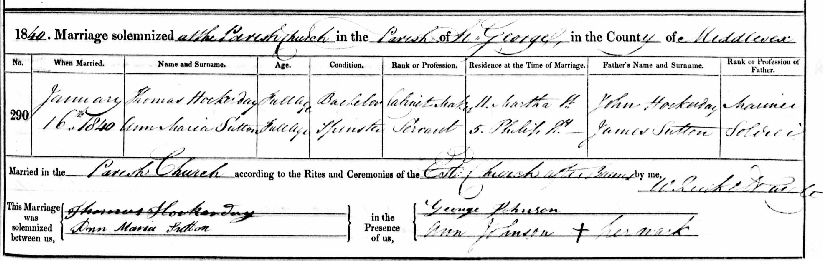 1840. Marriage solemnized at the Parish Church in the Parish of St. George, in the County of Middlesex
No. When Married. Name and Surname. Age. Condition. Rank or Profession. Residence at the Time of Marriage. Father's Name and Surname. Rank or Profession of Father.
290 January Thomas Hockerday Full Age Bachelor Cabinet Maker 11. Martha St. John Hockerday Mariner
16th 1840 Ann Maria Sutton Full Age Spinster Servant 5. Philip St. James Sutton Soldier
Married in the Parish Church according to the Rites and Ceremonies of the Church after Banns by me,
This Marriage was solemnized between us, Thomas Hockerday in the Presence of us, George Johnson
Ann Maria Sutton Ann Johnson + her mark